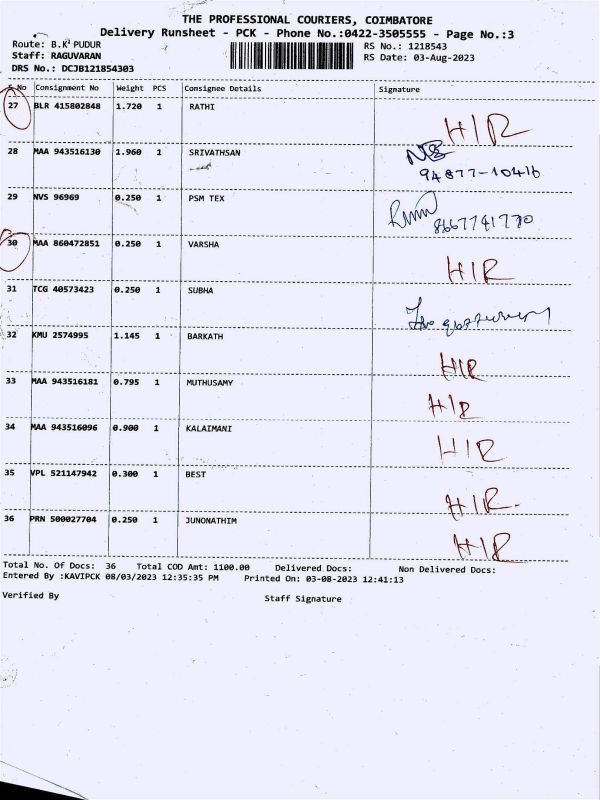 THE PROFESSIONAL COURIERS, COIMBATORE
Delivery Runsheet - PCK - Phone No.:0422-3505555 - Page No.:3
Route: B.K PUDUR
RS No.: 1218543
Staff: RAGUVARAN
RS Date: 03-Aug-2023
DRS No.: DCJB121854303
S.No Consignment No Weight PCS Consignee Details Signature
27 BLR 415802848 1.720 1 RATHI HIR
28 MAA 943516130 1.960 1 SRIVATHSAN
94877-10416
29 NVS 96969 0.250 1 PSM TEX
8667741770
30 MAA 860472851 0.250 1 VARSHA HIR
31 TCG 40573423 0.250 1 SUBHA
32 KMU 2574995 1.145 1 BARKATH HIR
33 MAA 943516181 0.795 1 MUTHUSAMY HIR
34 MAA 943516096 0.900 1 KALAIMANI HIR
35 VPL 521147942 0.300 1 BEST HIR.
36 PRN 500027704 0.250 1 JUNONATHIM HIR
Total No. Of Docs: 36 Total COD Amt: 1100.00 Delivered Docs: Non Delivered Docs:
Entered By :KAVIPCK 08/03/2023 12:35:35 PM Printed On: 03-08-2023 12:41:13
Verified By Staff Signature